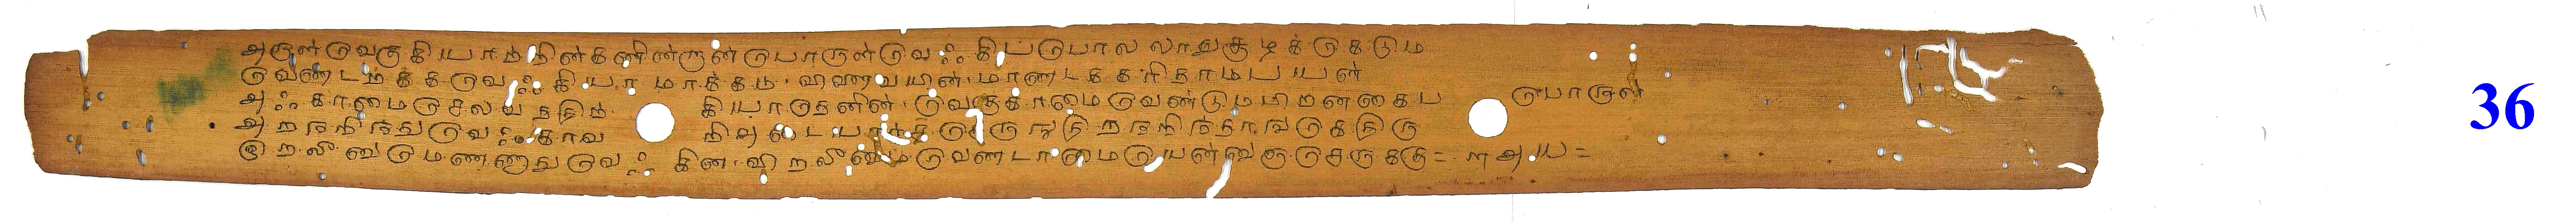 அருள்வெஃகியாற்றின்கணின்றான்பொருள்வெஃகிப்பொலலாதசூழக்கெடும
வேண்டற்கவெஃகியாமாக்கம விளைவயின் மாணடற்கரிதாமபயன்
அஃகாமைசெலவத்திற் கியாதெனின் வெஃகாமைவேண்டுமபிறனகைப பொருள்
அறனறிந்துவெஃகாவ றிவுடையார்ச்சேருந்திறனறிந்தாங்கேதிரு
இறலீனுமெணணாதுவெஃ கின விறலீனுமவேணடாமையென்னுஞ்செருககு= ௱௮௰=
36